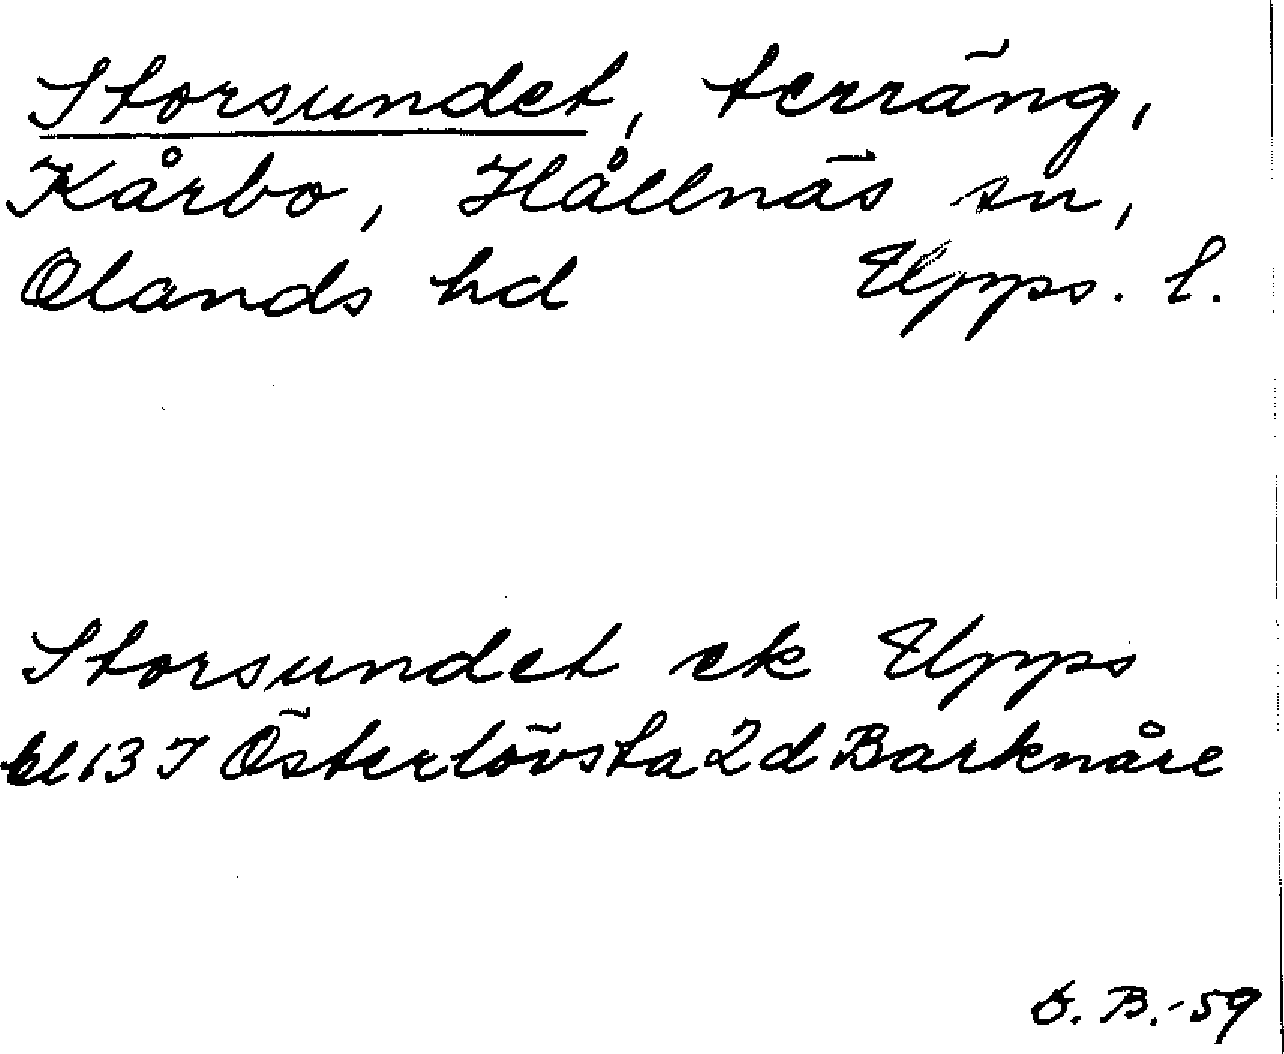 Storsundet, terräng,
Kårbo, Hållnäs sn,
Olands hd Upps. l.
Storsundet ek Upps
bl 13 I Österlövsta 2d Barknåre
O. B.-59